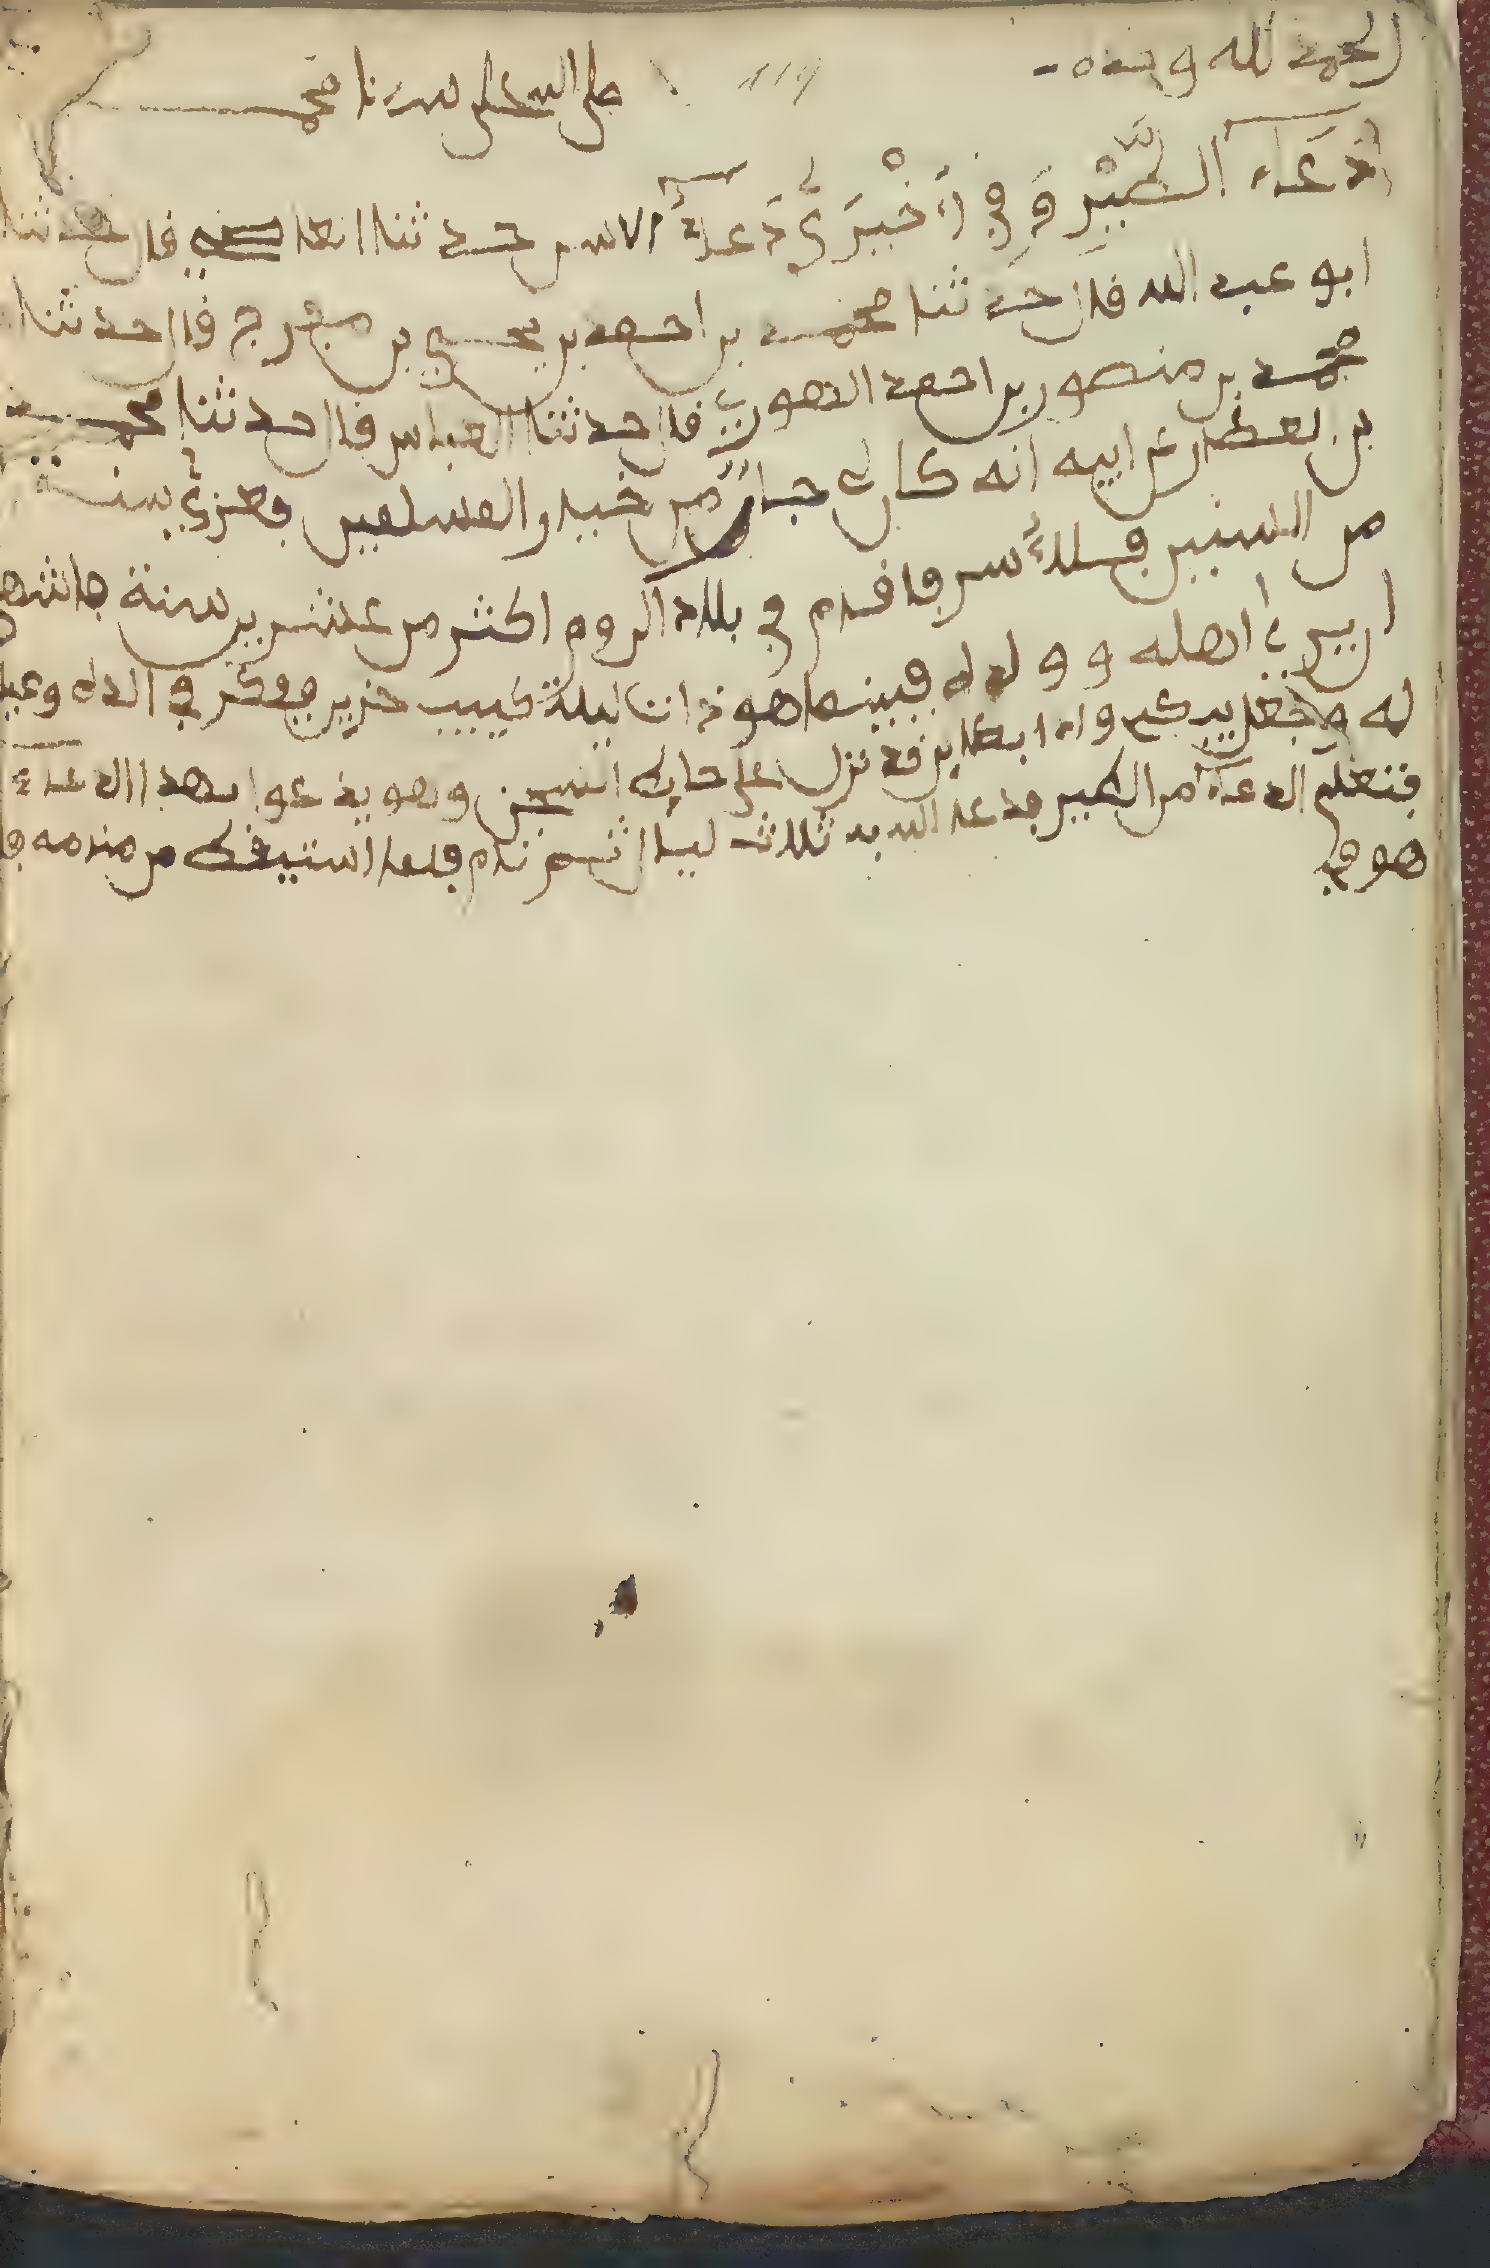 الحمد لله وحده
صلى الله على سيدنا محمد
119
دعاء الطير وفي أخبرى دعاء الاسر حدثنا القاضي قال حدثنا
ابو عبد الله قال حدثنا محمد بن احمد بن يحيى بن مفرج قال حدثنا
محمد بن منصور بن احمد قال حدثنا العباس قال حدثنا محمد
بن عن ابيه انه كان جار من خيار المسلمين فغزى سنة
من السنين فأسر فاقام في بلاد الروم اكثر من عشرين سنة
الى اهله وولده فبينما هو ذات ليلة كييب حزين يفكر في اهله
له وجعل يبكي واذا بطاير قد نزل على حايط السجن وهو يدعوا بهذا الدعاء
فتعلم الدعاء من الطير فدعا الله به ثلاث ليال ثم نام فلما استيقظ من منامه
هو في